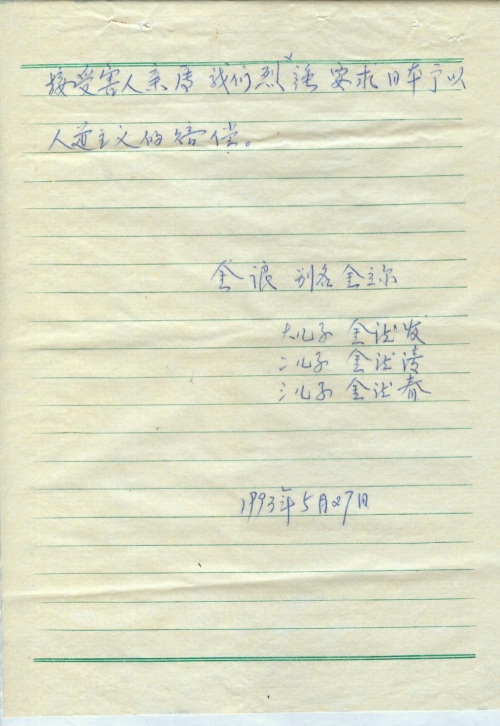 接受害人亲属 我们烈强 要求日本予以
人道主义的赔偿。
金浪 别名 金主尔
大儿子 金法发
二儿子 金法清
三儿子 金法春
1993年5月27日